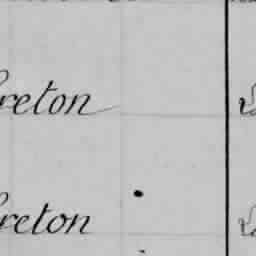 reton
reton